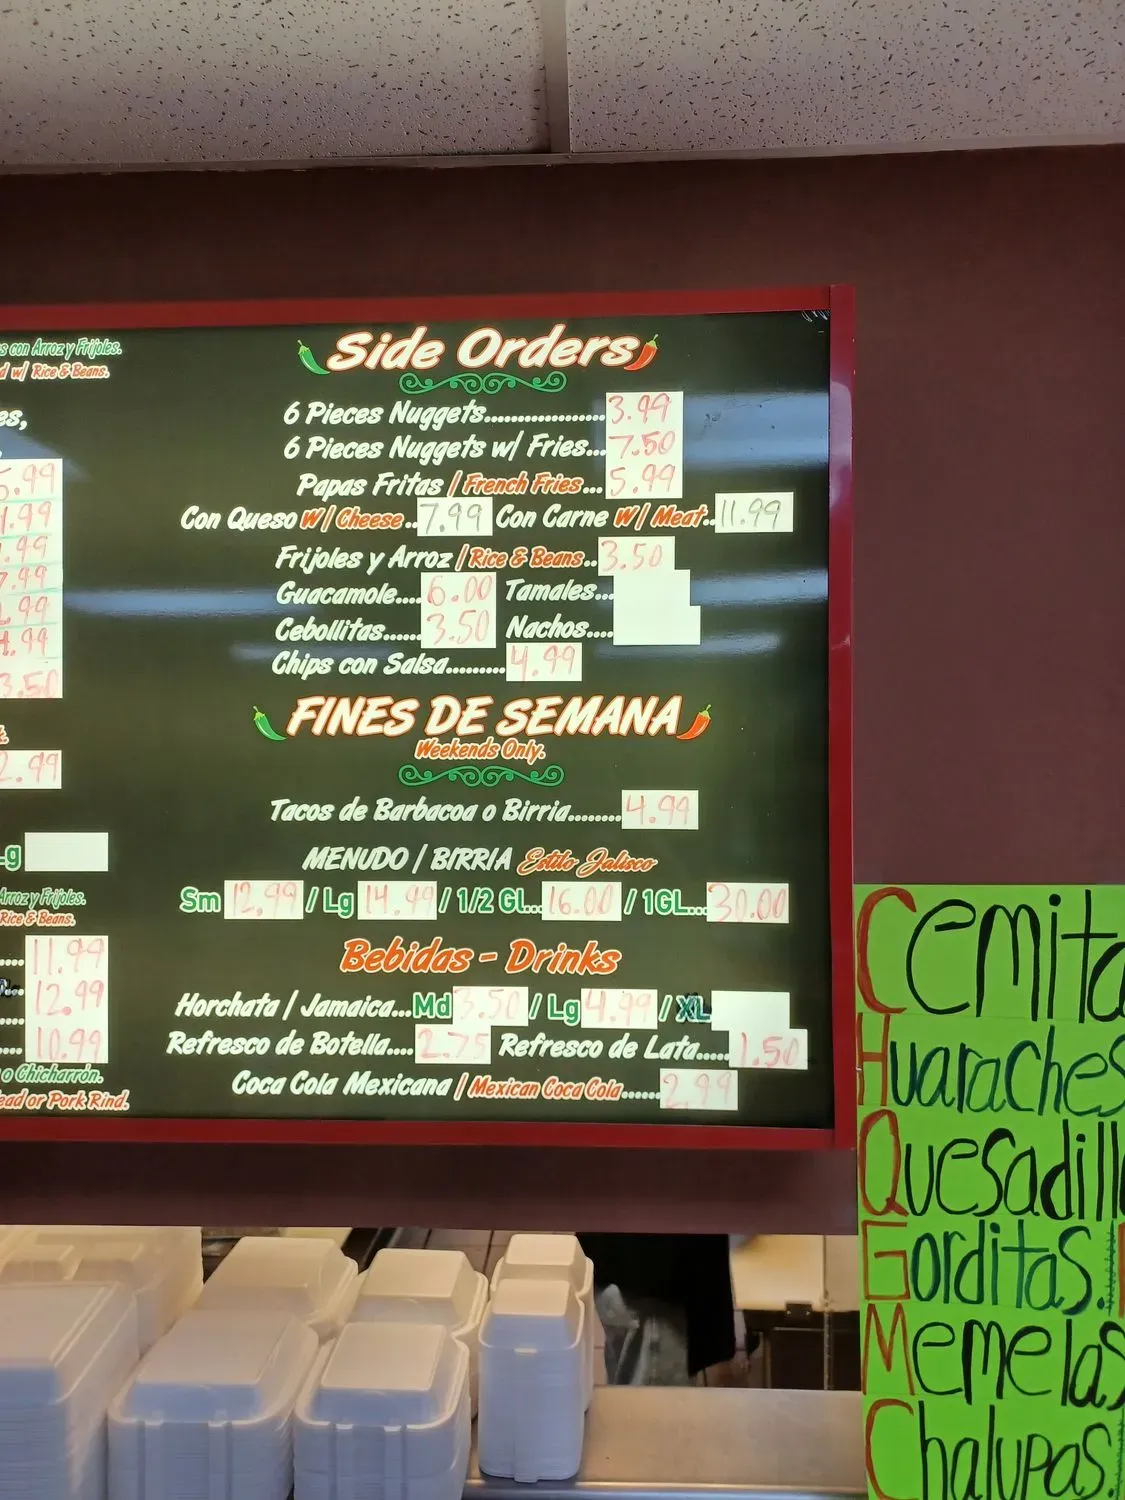 s con Arroz y Frijoles.
d w/ Rice & Beans.
es,
5.99
.99
.99
7.99
.99
.99
3.50
2.99
Lg
Arroz y Frijoles.
Rice & Beans.
.... 11.99
... 12.99
.... 10.99
o Chicharrón.
ead or Pork Rind.
Side Orders
6 Pieces Nuggets.................. 3.99
6 Pieces Nuggets w/ Fries... 7.50
Papas Fritas / French Fries... 5.99
Con Queso W/ Cheese.. 7.99 Con Carne W/ Meat.. 11.99
Frijoles y Arroz / Rice & Beans.. 3.50
Guacamole.... 6.00 Tamales...
Cebollitas...... 3.50 Nachos....
Chips con Salsa......... 4.99
FINES DE SEMANA
Weekends Only.
Tacos de Barbacoa o Birria........ 4.99
MENUDO / BIRRIA Estilo Jalisco
Sm 12.99 / Lg 14.99 / 1/2 Gl... 16.00 / 1GL... 30.00
Bebidas - Drinks
Horchata / Jamaica... Md 3.50 / Lg 4.99 / XL
Refresco de Botella.... 2.75 Refresco de Lata..... 1.50
Coca Cola Mexicana / Mexican Coca Cola...... 2.99
Cemita
Huaraches
Quesadill
Gorditas.
Memelas
Chalupas.